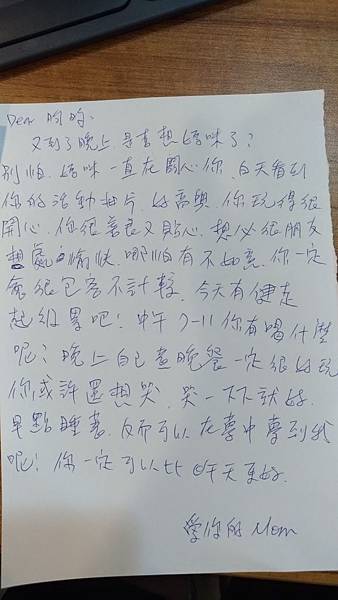 Dear 昀昀:
又到了晚上,是否想媽咪了?
別怕,媽咪一直在關心你,白天看到
你的活動相片,好高興,你玩得很
開心,你很善良又貼心,想必很朋友
相處愉快,哪怕有不如意,你一定
會很包容不計較,今天有健走
起組累吧!中午7-11你有喝什麼
呢?晚上自己煮晚餐一定很好玩
你或許還想哭,笑一下下就好,
早點睡著,反而可以在夢中夢到我
呢!你一定可以比昨天更好.
愛你的 Mom